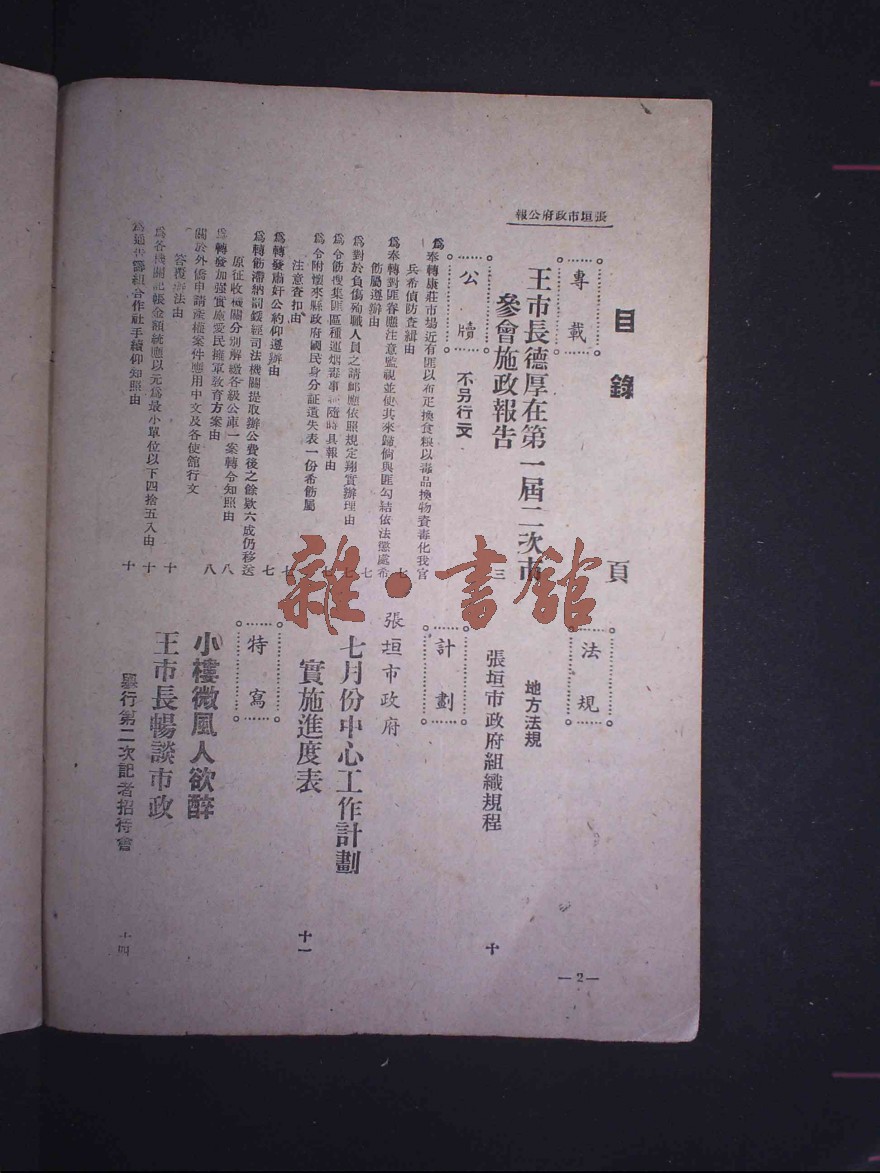 報公府政市垣張
目錄
頁
專載
王市長德厚在第一屆二次市
參會施政報告
三
公牘
不另行文
為奉轉康莊市場近有匪以布疋換食粮以毒品換物資毒化我官
兵希偵防查緝由
七
為奉轉對匪眷應注意監視並使其來歸倘與匪勾結依法懲處希
飭屬遵辦由
七
為對於負傷殉職人員之請卹應依照規定翔實辦理由
七
為令飭搜集匪區種運烟毒事
隨時具報由
七
為令附懷來縣政府國民身分証遺失表一份希飭屬
注意查扣由
七
為轉發肅奸公約仰遵辦由
七
為轉飭滯納罰鍰經司法機關提取辦公費後之餘欵六成仍移送
原征收機關分別解繳各級公庫一案轉令知照由
八
為轉發加強實施愛民擁軍教育方案由
八
關於外僑申請產權案件應用中文及各使舘行文
答覆辦法由
十
為各機關記帳金額統應以元為最小單位以下四捨五入由
十
為通告籌組合作社手續仰知照由
十
法規
地方法規
張垣市政府組織規程
十
計劃
張垣市政府
七月份中心工作計劃
實施進度表
十一
特寫
小樓微風人欲醉
王市長暢談市政
舉行第二次記者招待會
十四
—2—
雜·書館